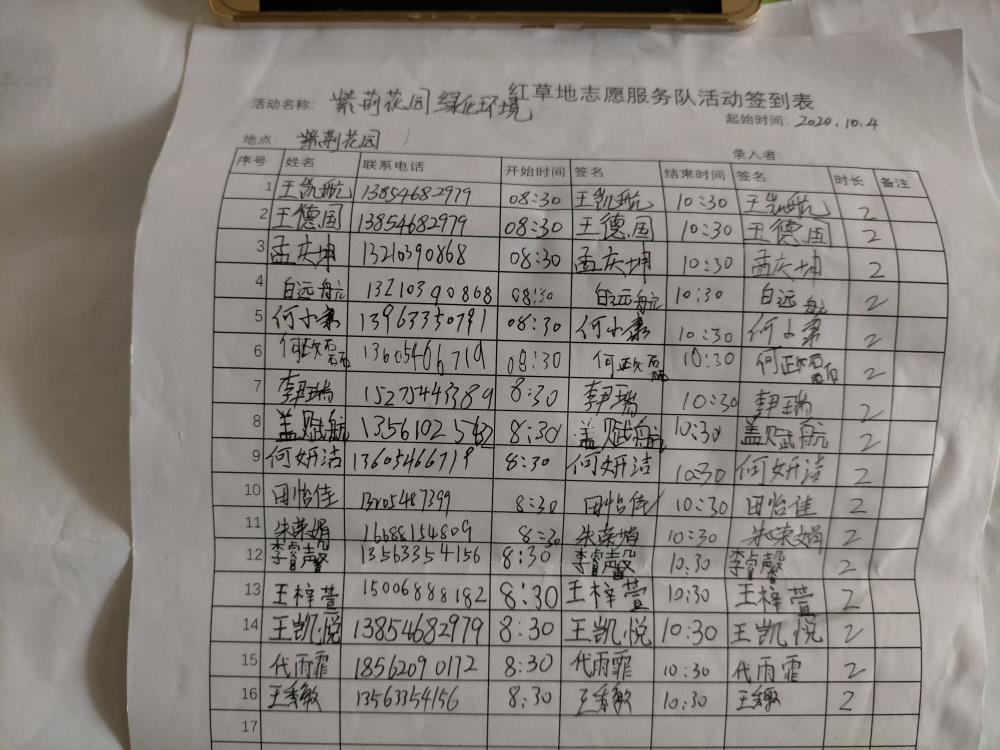 红草地志愿服务队活动签到表
活动名称: 紫荆花园绿化环境
起始时间: 2020.10.4
地点: 紫荆花园
录入者:
序号 姓名 联系电话 开始时间 签名 结束时间 签名 时长 备注
1 王凯航 13854682979 08:30 王凯航 10:30 王凯航 2
2 王德国 13854682979 08:30 王德国 10:30 王德国 2
3 孟庆坤 13210390868 08:30 孟庆坤 10:30 孟庆坤 2
4 白远航 13210390868 08:30 白远航 10:30 白远航 2
5 何小素 13963350791 08:30 何小素 10:30 何小素 2
6 何政 13605466719 08:30 何政 10:30 何政 2
7 李瑞 15275443389 8:30 李瑞 10:30 李瑞 2
8 盖赋航 8:30 盖赋航 10:30 盖赋航 2
9 何妍洁 13605466719 8:30 何妍洁 10:30 何妍洁 2
10 田怡佳 8:30 田怡佳 10:30 田怡佳 2
11 朱荣娟 16688154809 8:30 朱荣娟 10:30 朱荣娟 2
12 李睿馨 13563354156 8:30 李睿馨 10:30 李睿馨 2
13 王梓萱 15006888182 8:30 王梓萱 10:30 王梓萱 2
14 王凯悦 13854682979 8:30 王凯悦 10:30 王凯悦 2
15 代雨霏 18562090172 8:30 代雨霏 10:30 代雨霏 2
16 王秀敏 13563354156 8:30 王秀敏 10:30 王秀敏 2
17